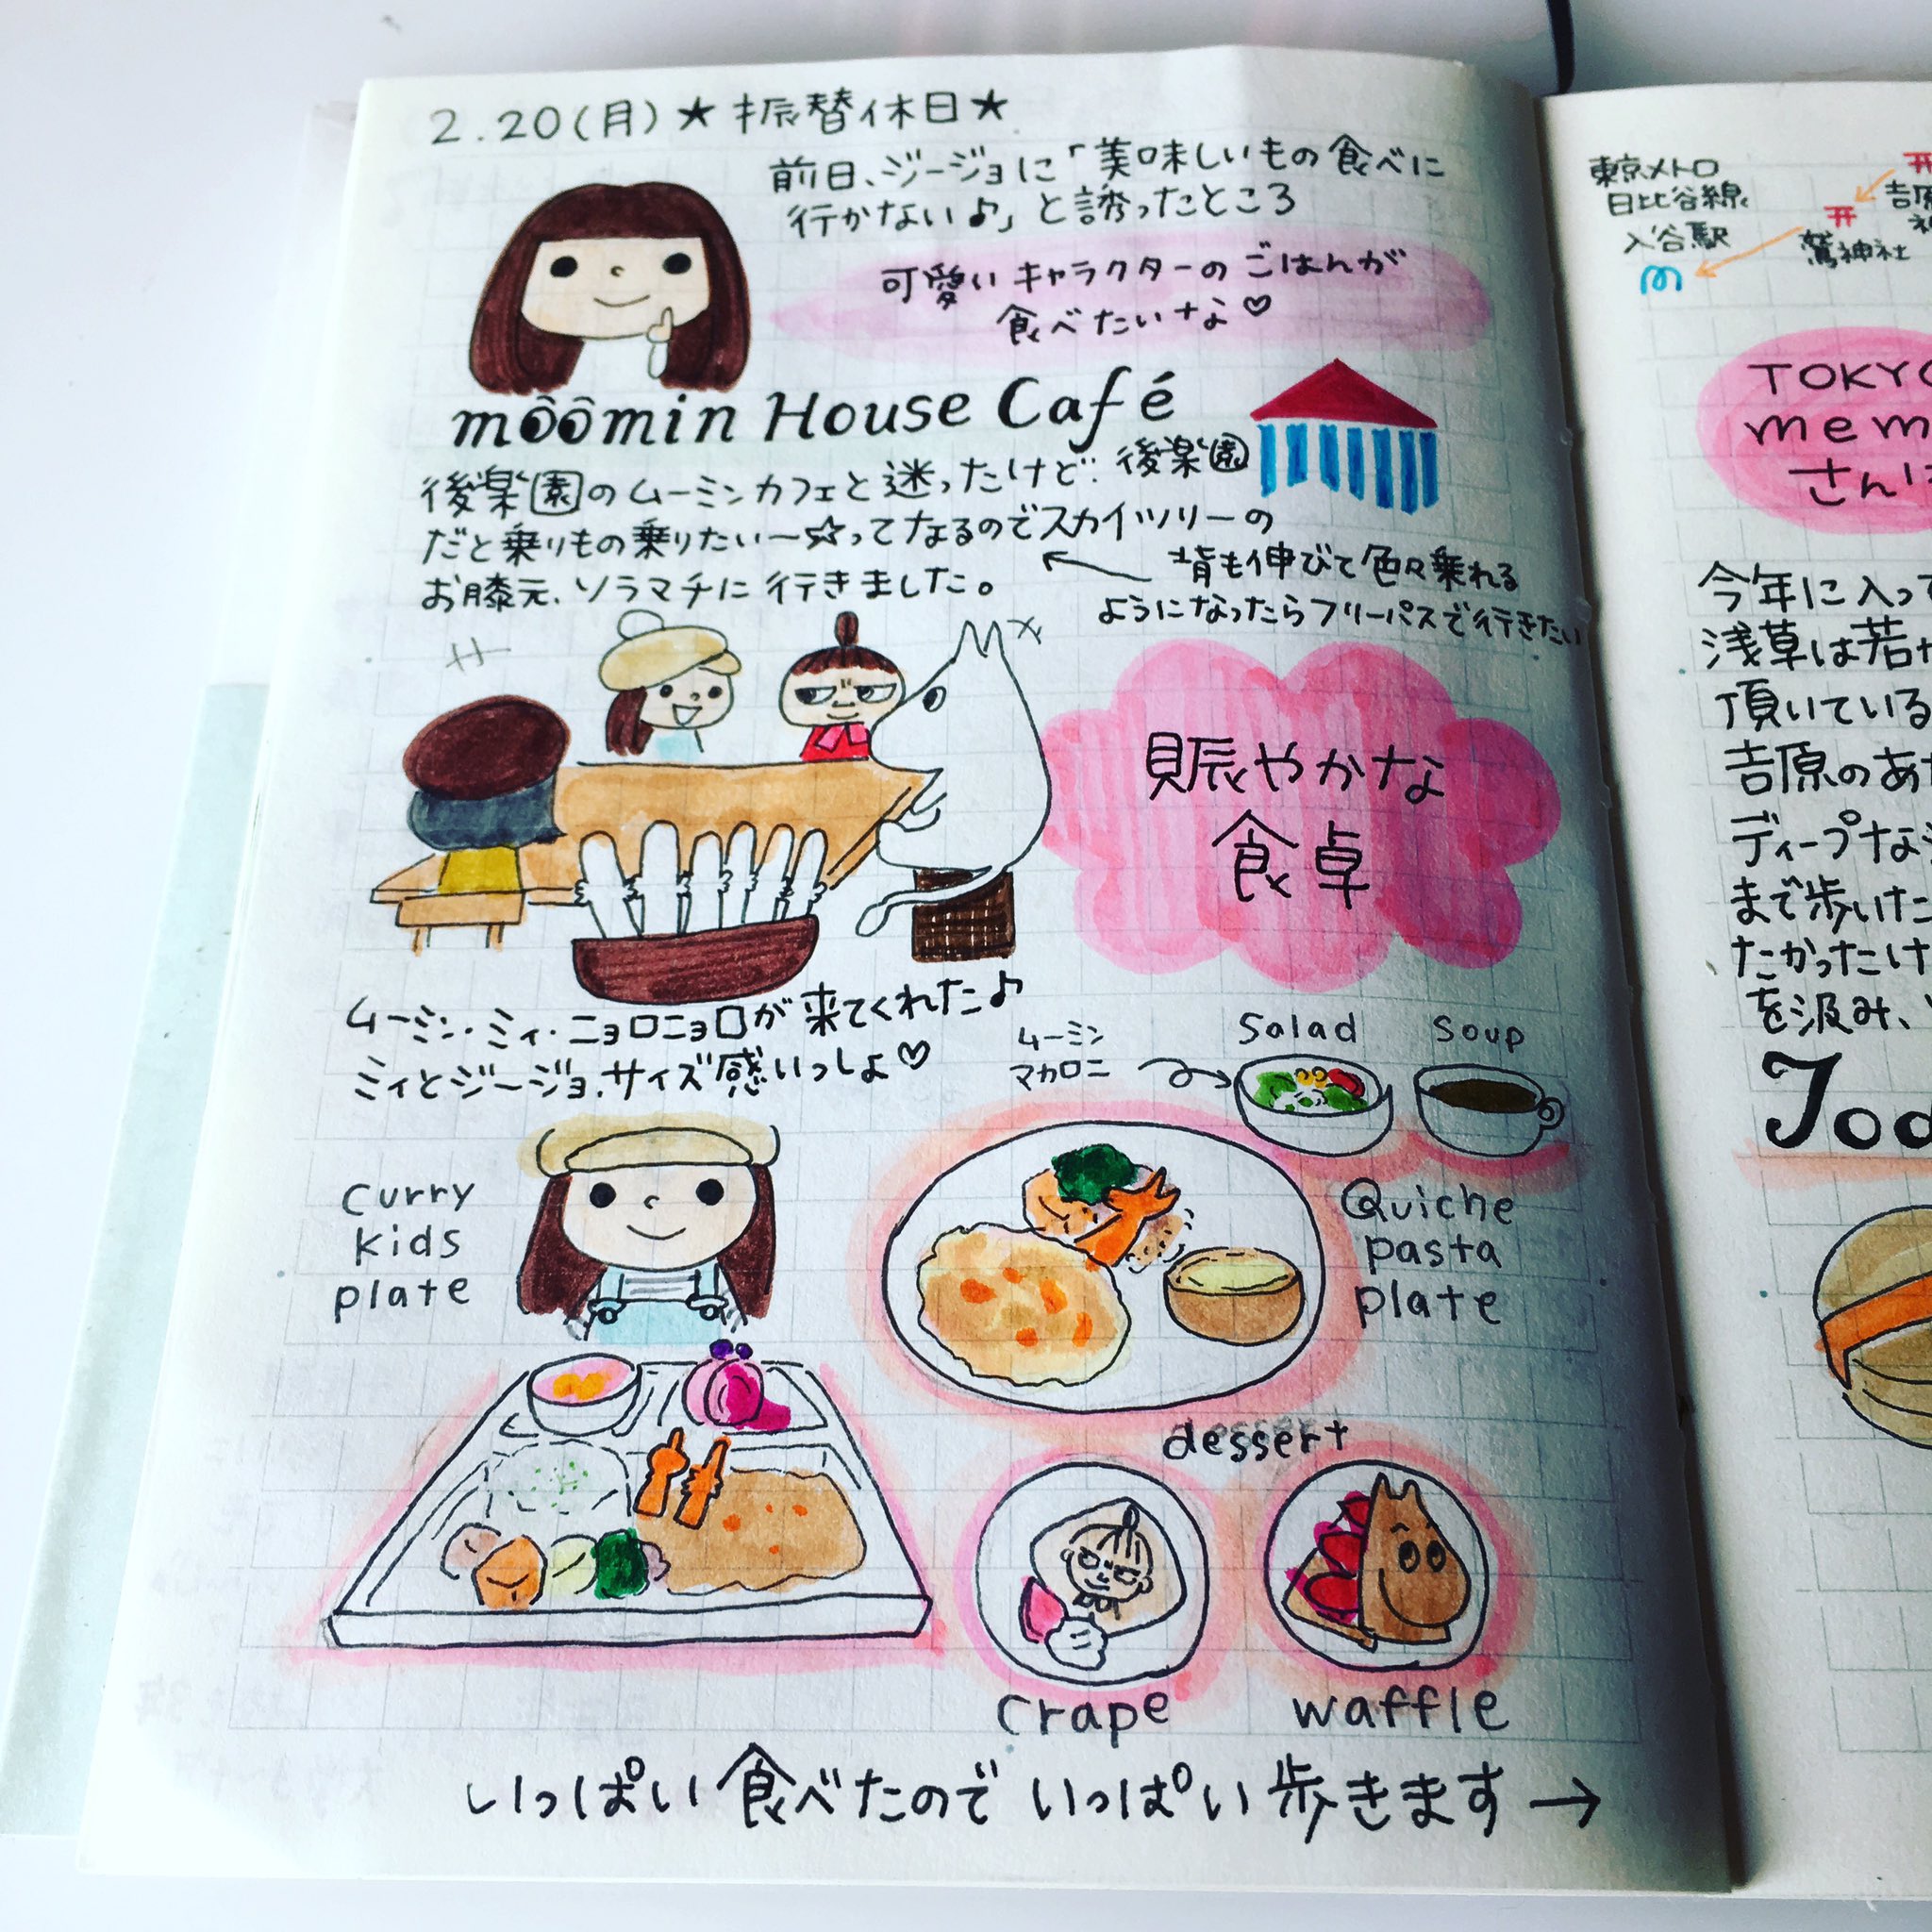 2.20(月)★振替休日★
前日、ジージョに「美味しいもの食べに
行かない♪」と誘ったところ
可愛いキャラクターのごはんが
食べたいな♡
moomin House Café
後楽園のムーミンカフェと迷ったけど、後楽園
だと乗りもの乗りたい〜☆ってなるのでスカイツリーの
お膝元、ソラマチに行きました。
←背も伸びて色々乗れる
ようになったらフリーパスで行きたい
賑やかな
食卓
ムーミン・ミィ・ニョロニョロが来てくれた♪
ミィとジージョ、サイズ感いっしょ♡
ムーミン
マカロニ
Salad
Soup
Curry
kids
plate
Quiche
pasta
plate
dessert
Crape
waffle
いっぱい食べたのでいっぱい歩きます→
東京メトロ
日比谷線
入谷駅
鷲神社
吉原
TOKYO
mem
さんは
今年に入って
浅草は若
頂いている
吉原のあ
ディープな
まで歩いた
たかったけ
を汲み、
Tod